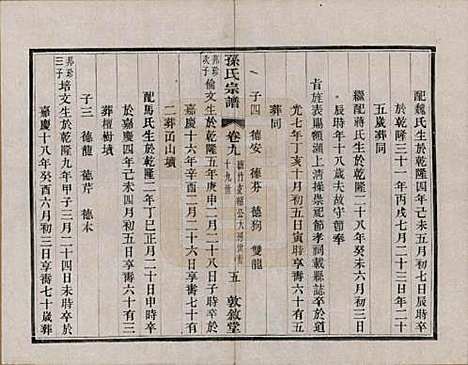 配魏氏生於乾隆四年己未五月初七日辰時卒
於乾隆三十一年丙戌七月二十三日年二十
五歲葬同
繼配蔣氏生於乾隆二十八年癸未六月初三日
辰時年十八歲夫故守節奉
旨旌表賜額瀕上清操崇祀節孝祠載縣誌卒於道
光七年丁亥十月初五日寅時享壽六十有五
葬同
子四 德安 德芬 德狗 雙龍
孫氏宗譜 卷九 十九世 五 敦敘堂
邦珍次子 倫文生於乾隆五年庚申二月二十八日子時卒
於嘉慶十六年辛酉二月二十六日享壽七十
二葬甬山墳
配馬氏生於乾隆二年丁巳正月二十日申時卒
於嘉慶四年己未五月初二日享壽六十有三
葬檀樹墳
子三 德龍 德芹 德木
邦珍三子 培文生於乾隆九年甲子三月二十四日未時卒於
嘉慶十八年癸酉六月初三日享壽七十歲葬